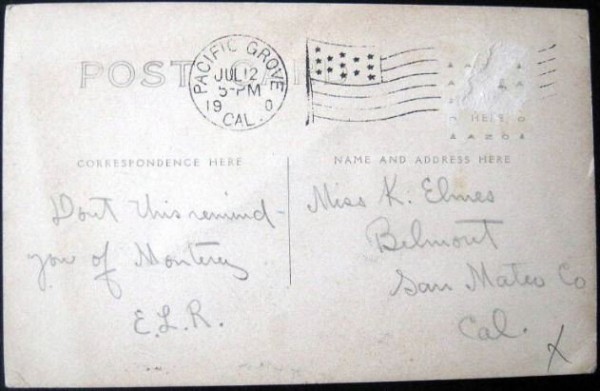 POST
PACIFIC GROVE
JUL 12
5-PM
19 0
CAL.
HERE
AZO
CORRESPONDENCE HERE
NAME AND ADDRESS HERE
Dont this remind-
you of Monterey
E.L.R.
Miss K. Elmes
Belmont
San Mateo Co
Cal.
X